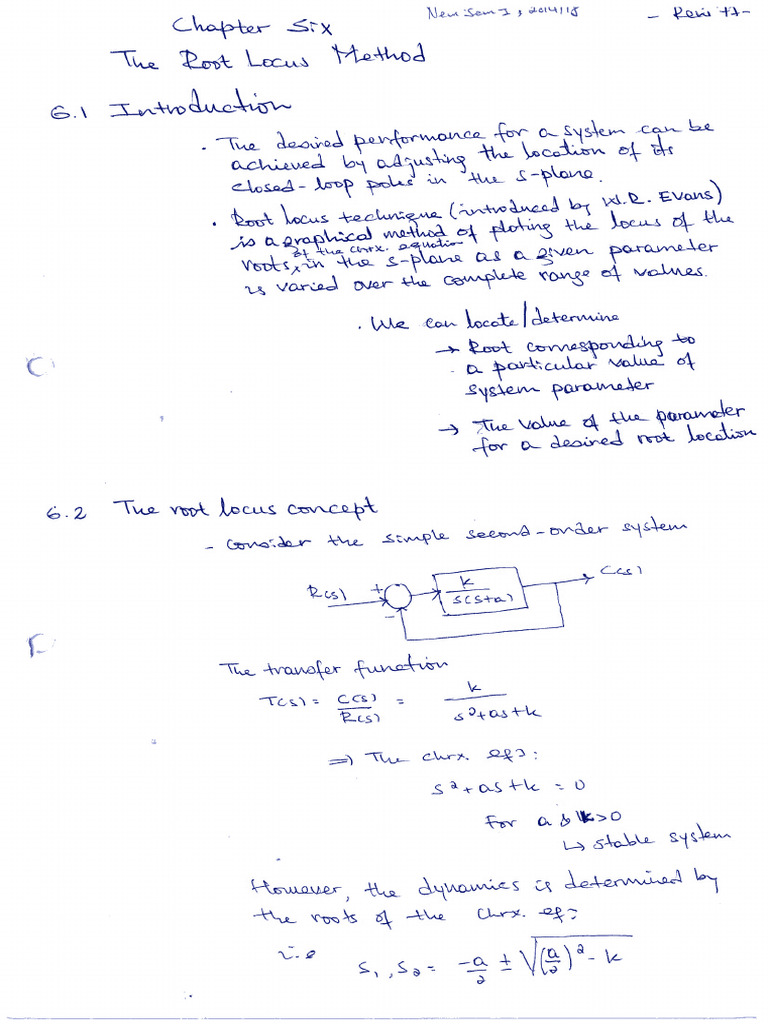 Chapter Six
The Root Locus Method
6.1 Introduction
. The desired performance for a system can be
achieved by adjusting the location of its
closed-loop poles in the s-plane.
. Root locus technique (introduced by W.R. Evans)
is a graphical method of ploting the locus of the
of the chrx. equation
roots, in the s-plane as a given parameter
is varied over the complete range of values.
. We can locate/determine
→ Root corresponding to
a particular value of
system parameter
→ The value of the parameter
for a desired root location
6.2 The root locus concept
- Consider the simple second-order system
R(s) + - k / s(s+a) C(s)
The transfer function
T(s) = C(s)/R(s) = k / s²+as+k
⇒ The chrx. eqn:
s²+as+k = 0
For a & k>0
↳ stable system
However, the dynamics is determined by
the roots of the chrx. eqn:
i.e
s₁, s₂ = -a/2 ± √((a/2)² - k)